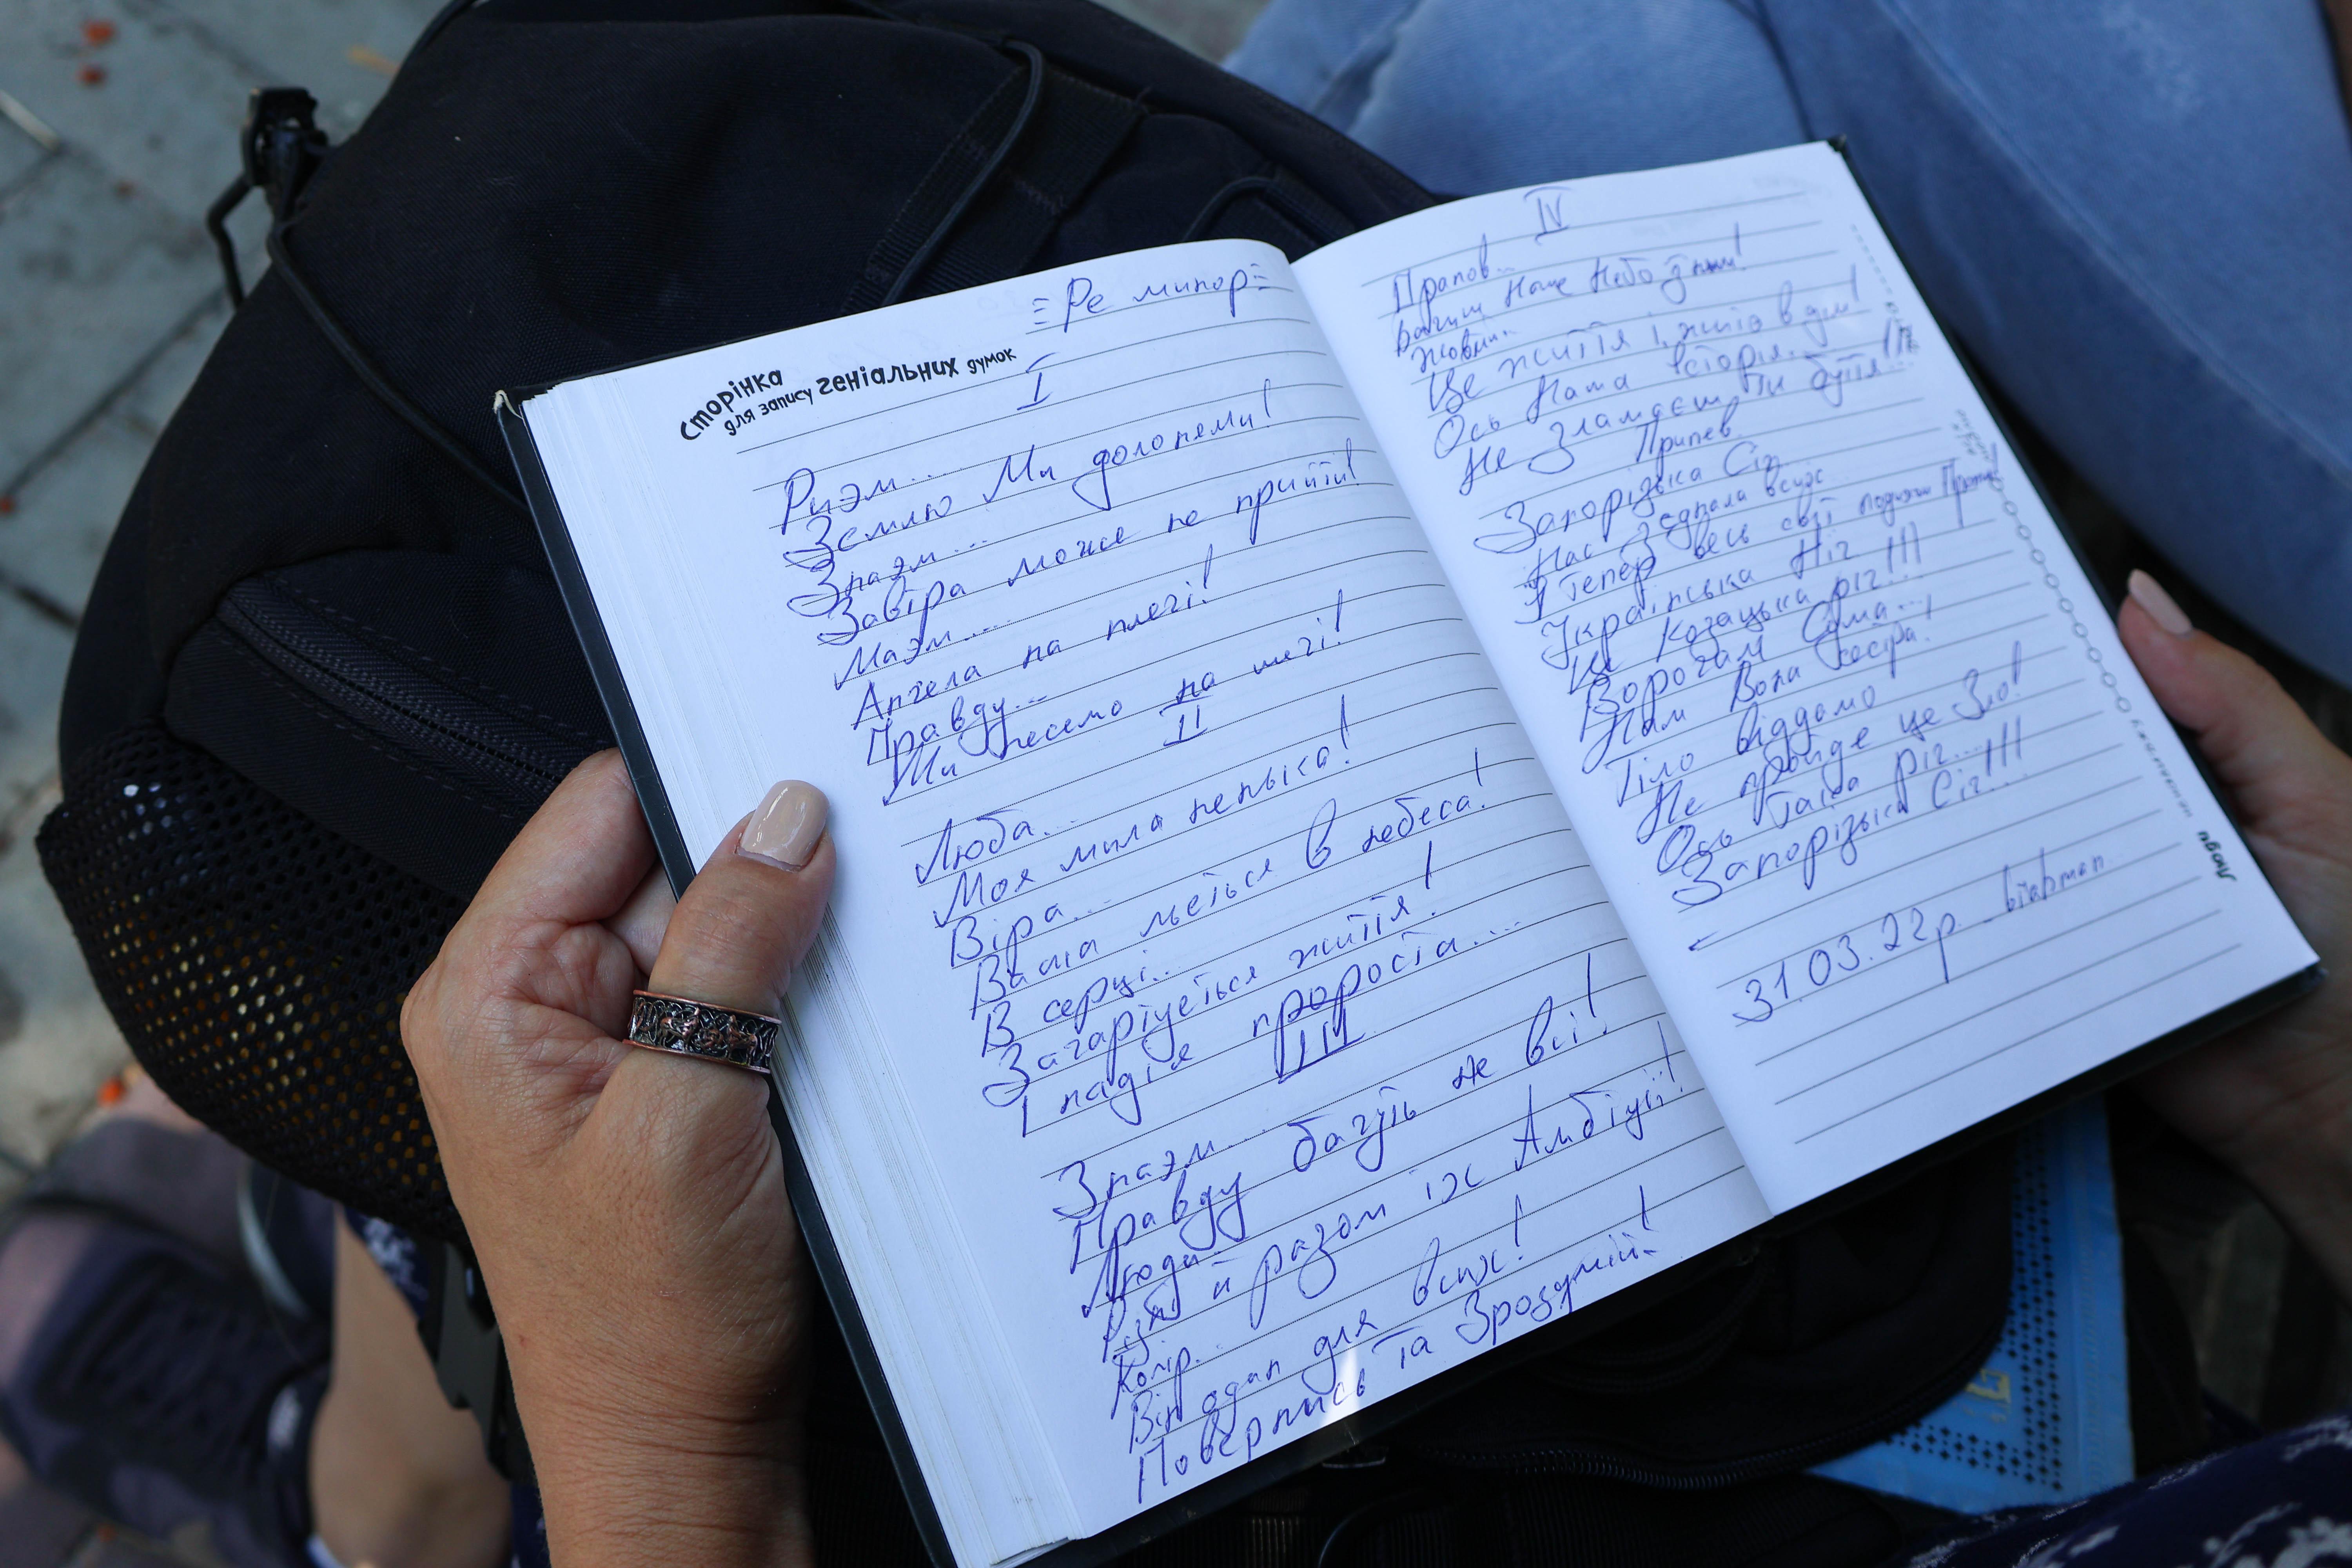 Сторінка
для запису геніальних думок
≡ Ре минор ≡
I
Риэм...
Землю Ми долонеми!
Знаэм...
Завтра може не прийти!
Маэм....
Ангела на плечі!
Правду...
Ми несемо на мечі!
II
Люба...
Моя мила ненька!
Віра...
Ваша льеться в небеса!
В серці..
Загартуеться життя!
І надія пророста....
III
Знаэм....
Правду бачуть не всі!
Люди..
Різні й разом їх Амбіції!
Колір...
Він один для всих!
Повернись та Зрозумій!
IV
Прапов...
Бачиш Наше Небо з ним!
Жовтий..
Це життя і жита в дім!
Ось Наша історія.
Не Зламаєш ти буття...!!!
Припев
Запорізька Січ
Нас Зєднала всих
І Тепер весь світ подивись Проти!
Українська Ніч
Це Козацька річ!!!
Ворогам Сума...
Нам Вона сестра!
Тіло віддамо
Не пройде це Зло!
Ось така річ....
Запорізька Січ!!!
31.03.22р.
Люди